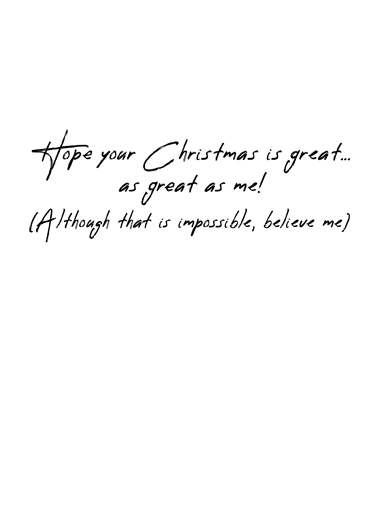 Hope your Christmas is great...
as great as me!
(Although that is impossible, believe me)